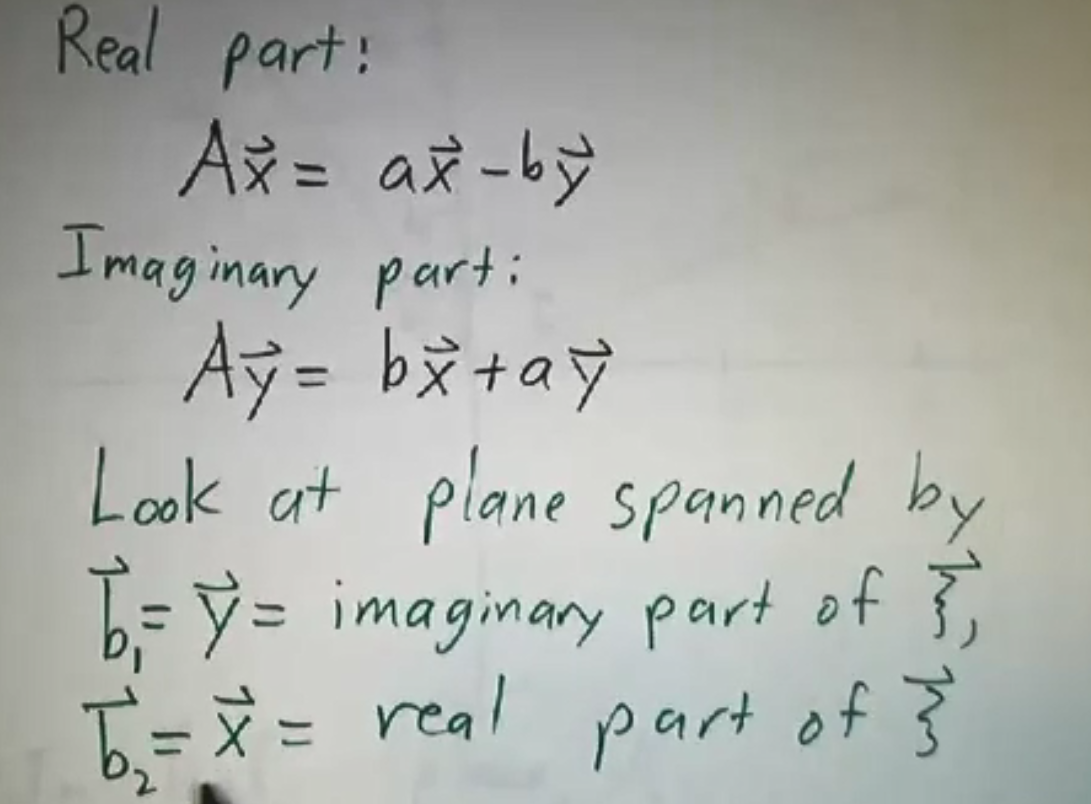 Real part:
A𝑥⃗ = a𝑥⃗ - b𝑦⃗
Imaginary part:
A𝑦⃗ = b𝑥⃗ + a𝑦⃗
Look at plane spanned by
b⃗₁ = 𝑦⃗ = imaginary part of 𝑧⃗,
b⃗₂ = 𝑥⃗ = real part of 𝑧⃗